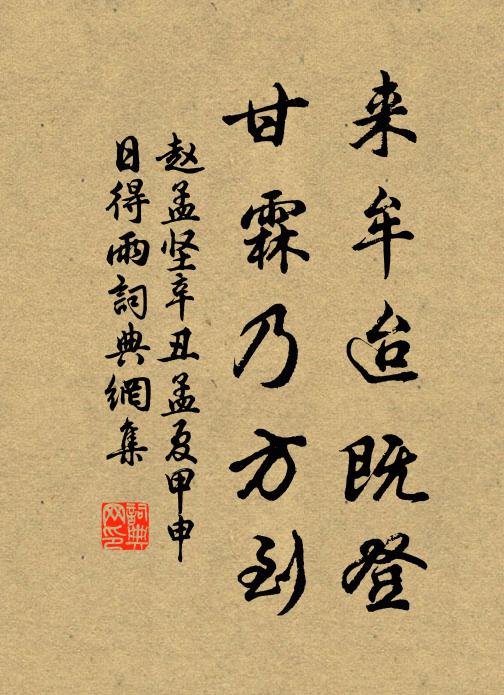 来牟迨既登
甘霖乃方到
赵孟坚辛丑孟夏甲申
日得雨詞典網集
詞典
网印